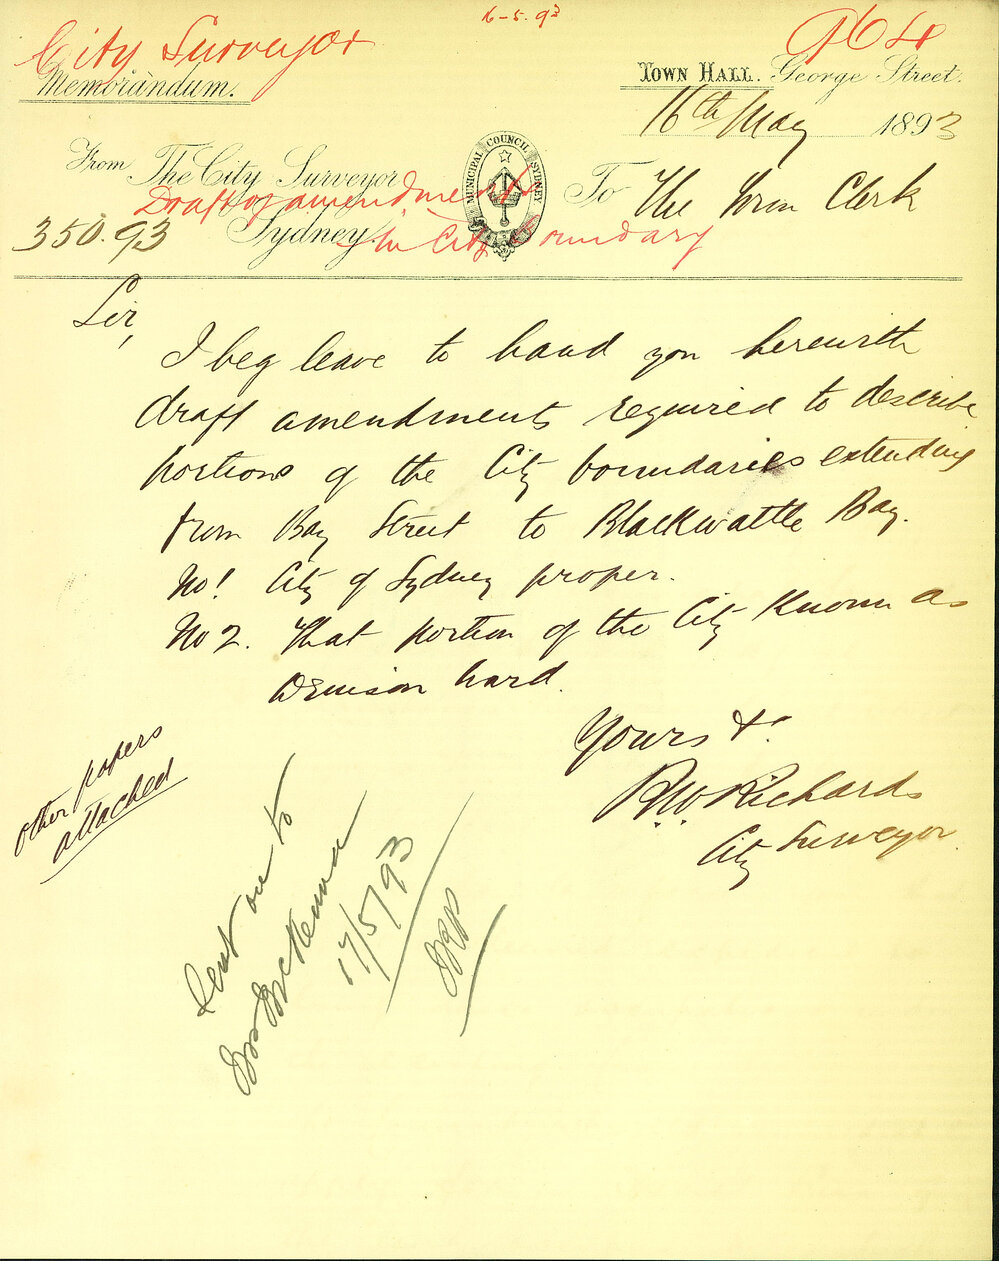 6-5.93
City Surveyor
964
Memorandum.
TOWN HALL. George Street.
16th May 1893
From The City Surveyor
MUNICIPAL COUNCIL SYDNEY
To The Town Clerk
Draft of amendments
350.93
Sydney.
in City Boundary
Sir,
I beg leave to hand you herewith
draft amendments required to describe
portions of the City boundaries extending
from Bay Street to Blackwattle Bay.
No 1 City of Sydney proper.
No 2. That portion of the City known as
Denison Ward.
Yours &c
R.W. Richards
City Surveyor
other papers
attached
Sent on to
17/5/93